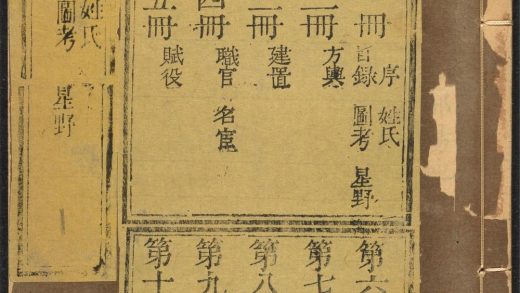 冊
序 姓氏
目錄 圖考 星野
冊 方輿
冊 建置
四冊 職官 名宦
五冊 賦役
第六
第七
第八
第九
第十
姓氏
圖考 星野